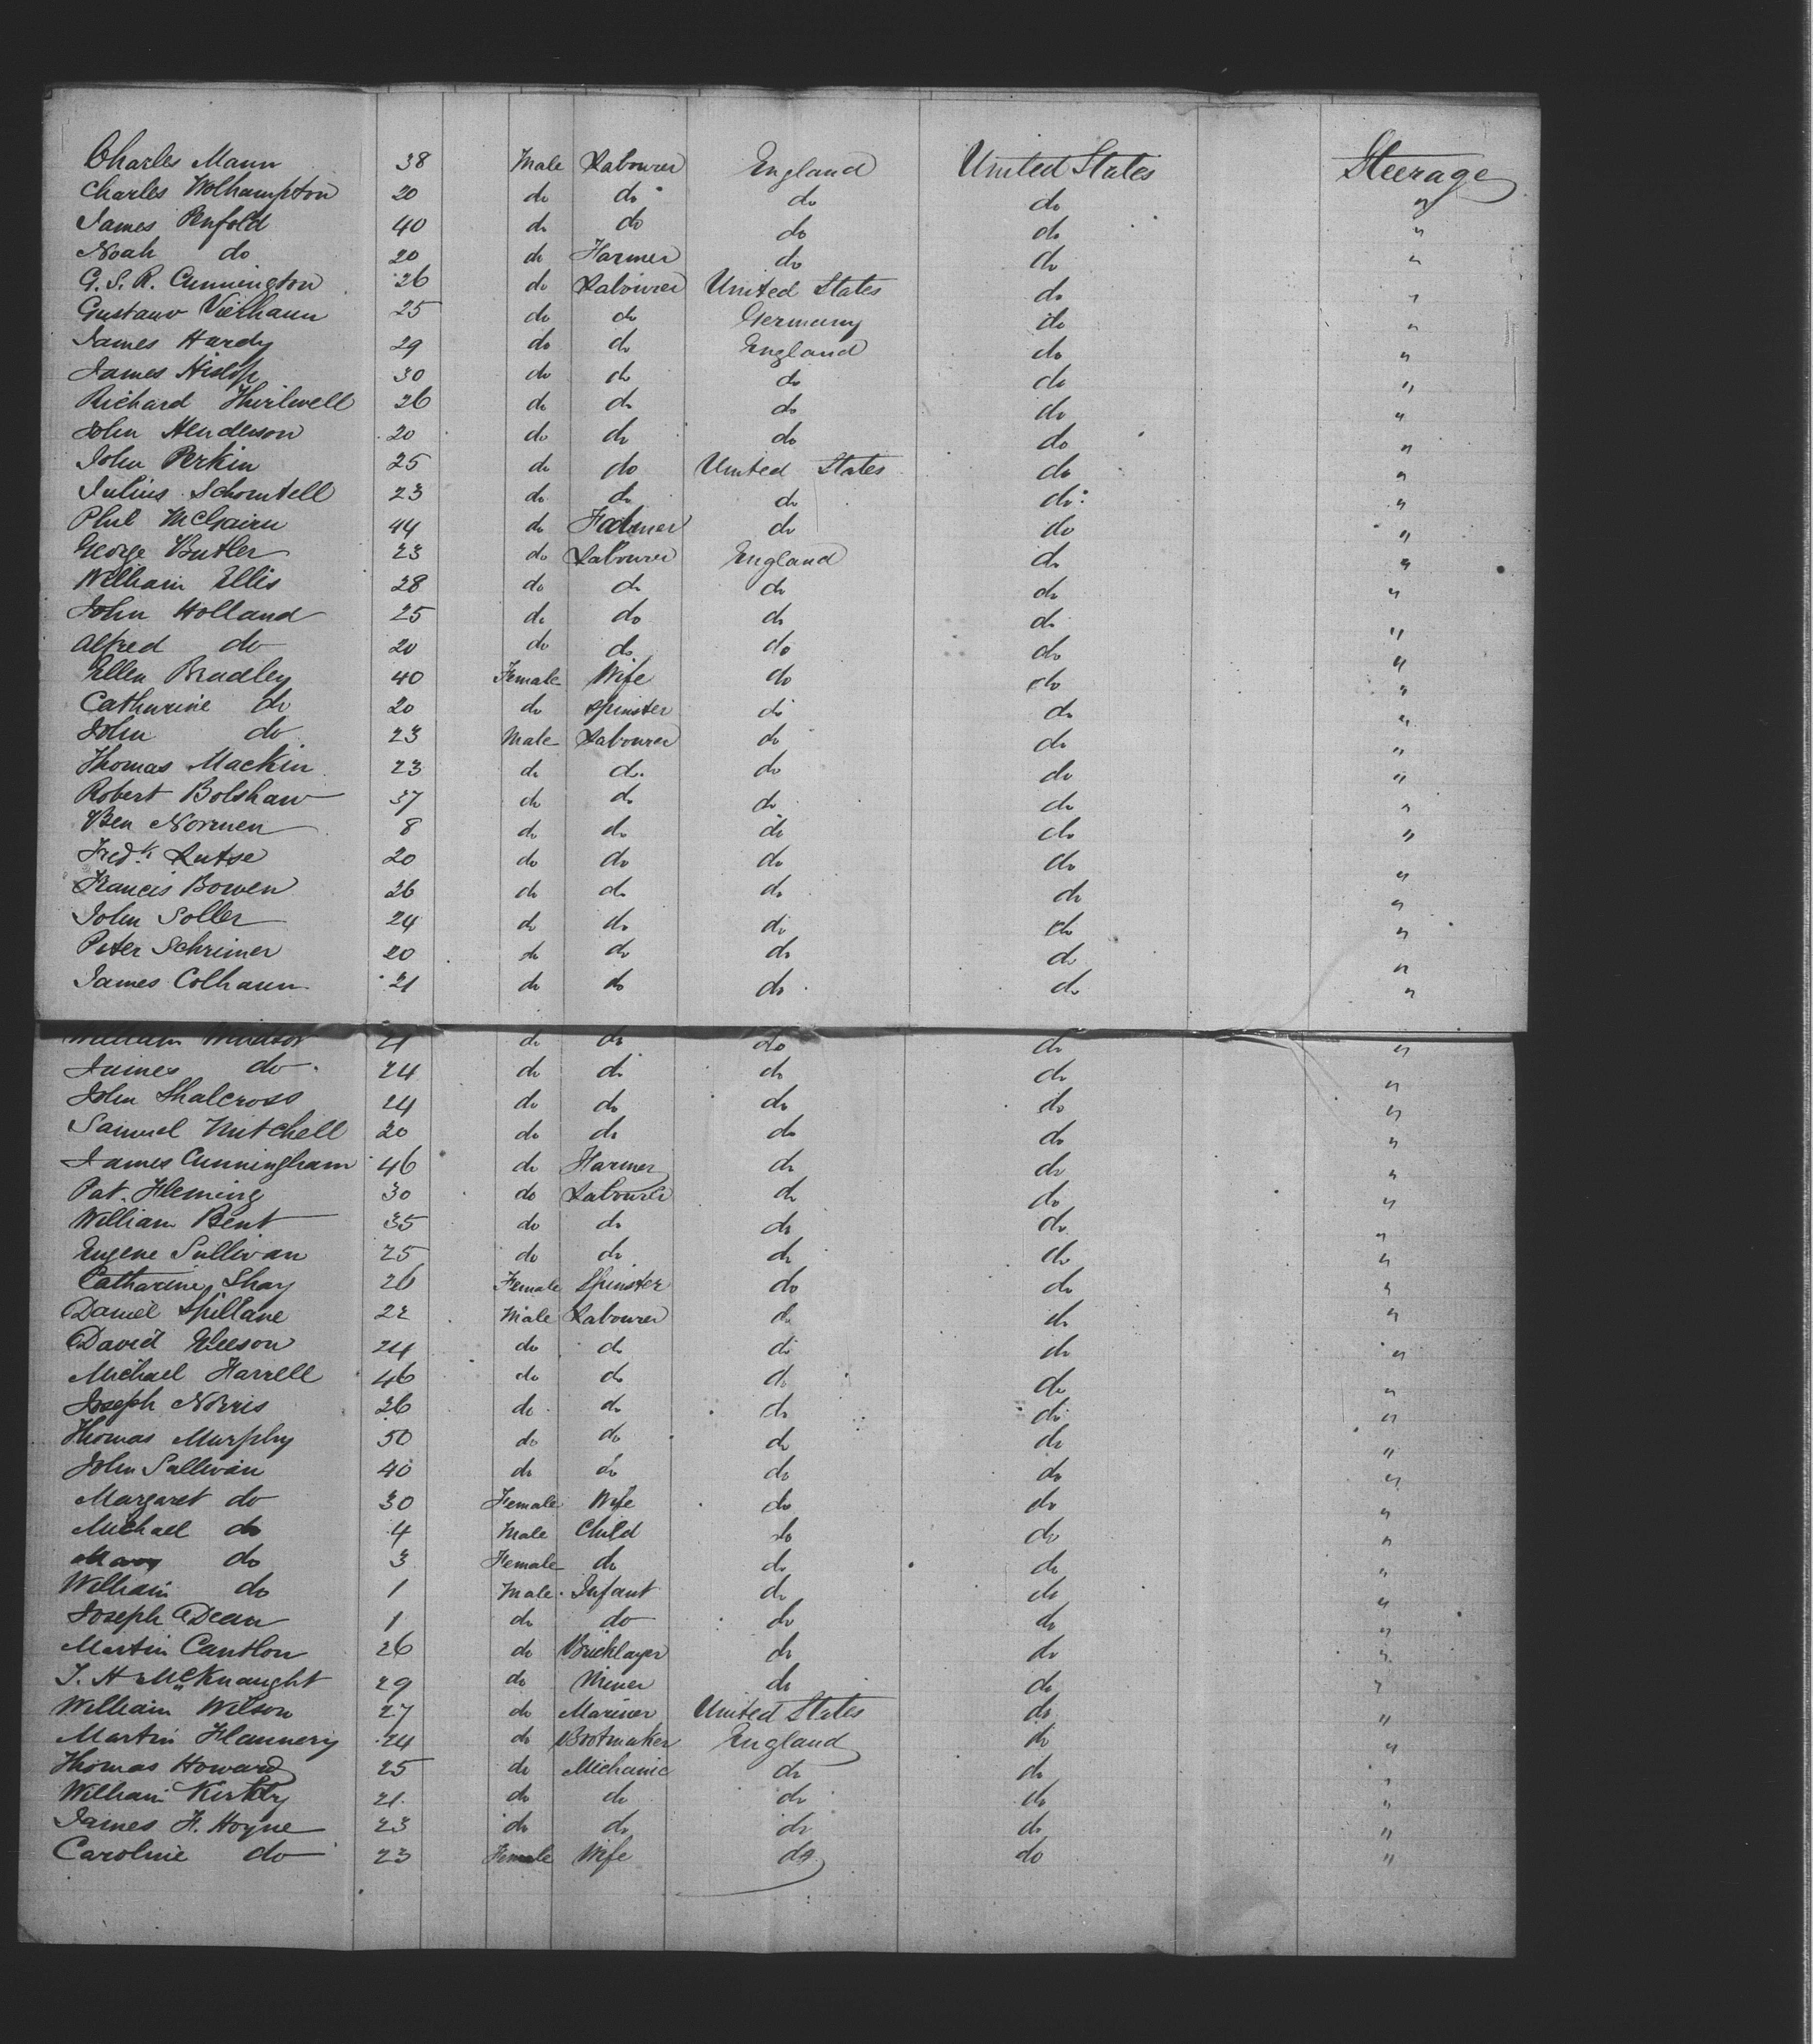 Charles Mann 38 Male Labourer England United States Steerage
Charles Wolhampton 20 do do do do "
James Penfold 40 do do do do "
Noah do 20 do Farmer do do "
G. S. R. Cunnington 26 do Labourer United States do "
Gustauv Vielhaun 25 do do Germany do "
James Hardy 29 do do England do "
James Hislop 30 do do do do "
Richard Thirlwell 26 do do do do "
John Henderson 20 do do do do "
John Perkin 25 do do United States do "
Julius Schomtell 23 do do do do "
Phil McGairn 44 do Farmer do do "
George Butler 23 do Labourer England do "
William Ellis 28 do do do do "
John Holland 25 do do do do "
Alfred do 20 do do do do "
Ellen Bradley 40 Female Wife do do "
Catherine do 20 do Spinster do do "
John do 23 Male Labourer do do "
Thomas Mackin 23 do do do do "
Robert Bolshaw 37 do do do do "
Ben Normen 8 do do do do "
Fredk Lutse 20 do do do do "
Francis Bowen 26 do do do do "
John Soller 24 do do do do "
Peter Schrimer 20 do do do do "
James Colhaun 21 do do do do "
William Windsor 21 do do do do "
James do 24 do do do do "
John Shalcross 24 do do do do "
Samuel Mitchell 20 do do do do "
James Cunningham 46 do Farmer do do "
Pat. Fleming 30 do Labourer do do "
William Bent 35 do do do do "
Eugene Sullivan 25 do do do do "
Catharine Shay 26 Female Spinster do do "
Daniel Spillane 22 Male Labourer do do "
David Gleeson 24 do do do do "
Michael Farrell 46 do do do do "
Joseph Norris 26 do do do do "
Thomas Murphy 50 do do do do "
John Sullivan 40 do do do do "
Margaret do 30 Female Wife do do "
Michael do 4 Male Child do do "
Mary do 3 Female do do do "
William do 1 Male Infant do do "
Joseph Dean 1 do do do do "
Martin Cantlon 26 do Bricklayer do do "
J. H McKnaught 29 do Miner do do "
William Wilson 27 do Mariner United States do "
Martin Flannery 24 do Bootmaker England do "
Thomas Howard 25 do Mechanic do do "
William Kirkby 21 do do do do "
James F. Hoyne 23 do do do do "
Caroline do 23 Female Wife do do "